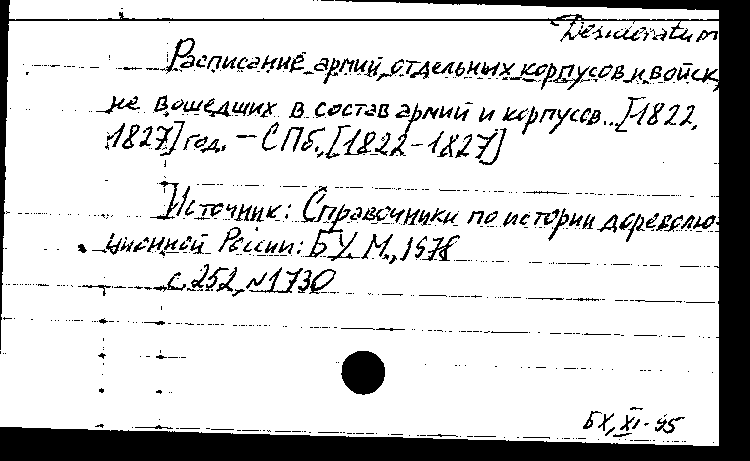 Desideratum
Расписание армий, отдельных корпусов и войск,
не вошедших в состав армий и корпусов...[1822,
1827] год. – СПб., [1822-1827]
Источник: Справочники по истории дореволю-
ционной России: БУ. М., 1978
с. 252, №1730
БХ, XI-95